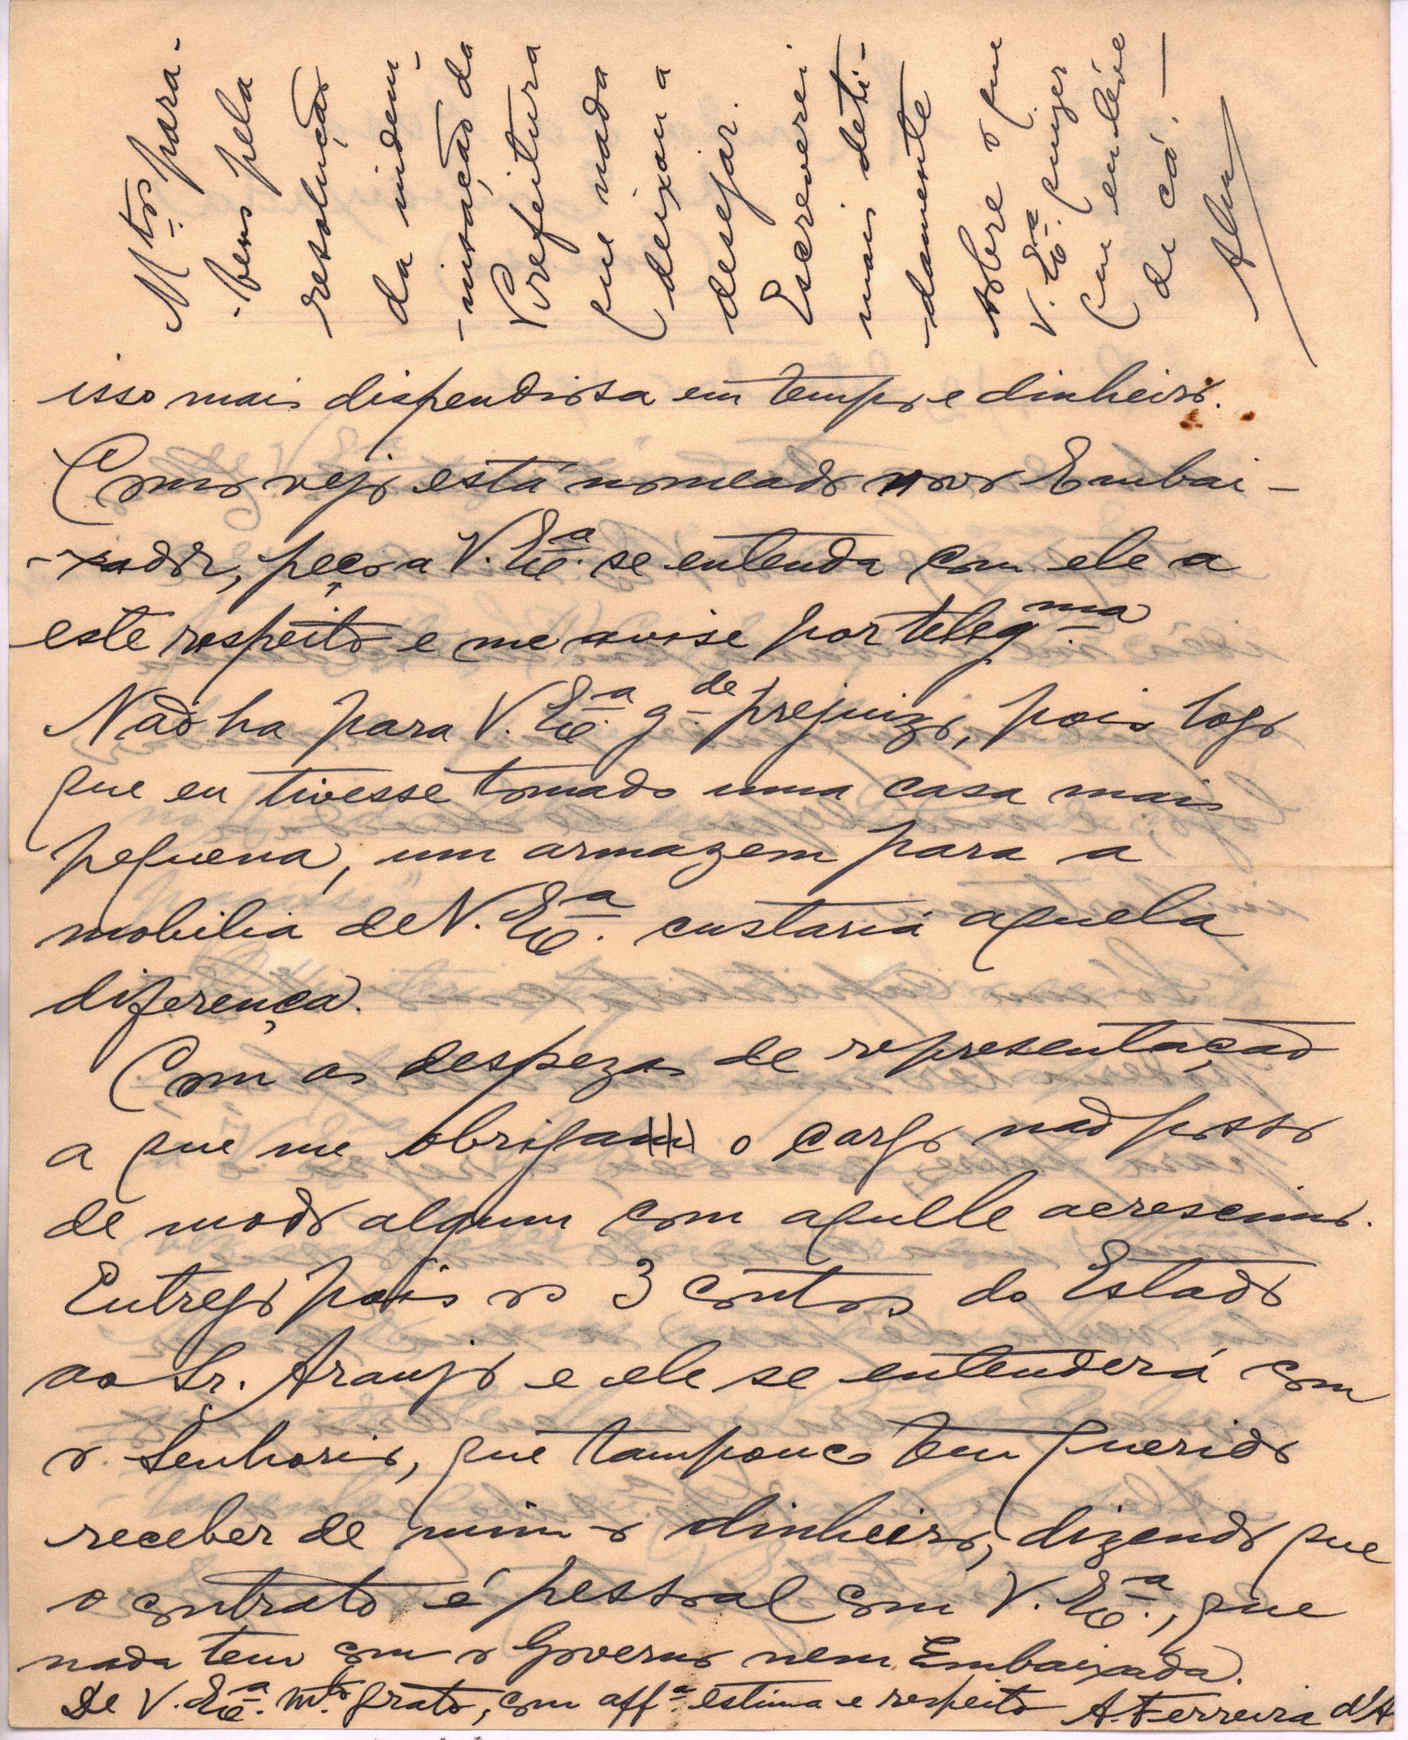 isso mais dispendiosa em tempo e dinheiro.
Como vejo está nomeado novo Embai-
-xador, peço a V. Exª. se entenda com ele a
este respeito e me avise por telegma
Não ha para V. Exª. gde prejuizo, pois logo
que eu tivesse tomado uma casa mais
pequena, um armazem para a
mobilia de V. Exª. custaria aquela
diferença.
Com as despezas de representação
a que me obriga o cargo não posso
de modo algum com aquelle acrescimo.
Entrego pois os 3 contos do Estado
ao Sr. Araujo e ele se entenderá com
o Senhorio, que tampouco tem querido
receber de mim o dinheiro, dizendo que
o contrato é pessoal com V. Exª., que
nada tem com o Governo nem Embaixada.
De V. Exª. mto. grato, com affª. estima e respeito A. Ferreira d'A
Mtos. para-
-bens pela
resolução
da indem-
-nisação da
Prefeitura
que nada
deixou a
desejar.
Escreverei
mais deti-
-damente
sobre o que
V. Exª. quizer
que eu leve
de cá. —